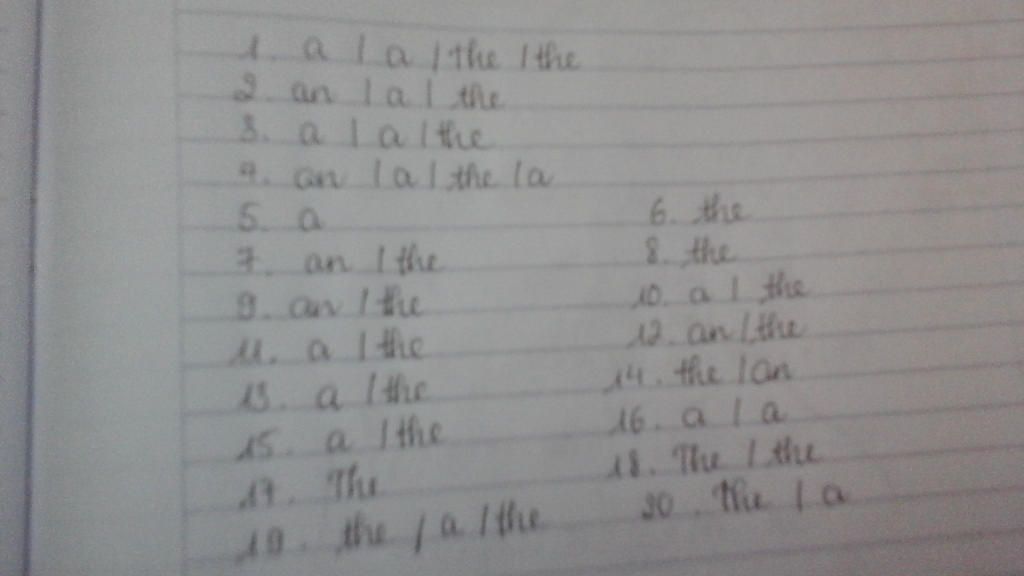 1. a / a / the / the
2. an / a / the
3. a / a / the
4. an / a / the / a
5. a 6. the
7. an / the 8. the
9. an / the 10. a / the
11. a / the 12. an / the
13. a / the 14. the / an
15. a / the 16. a / a
17. The 18. The / the
19. the / a / the 20. The / a